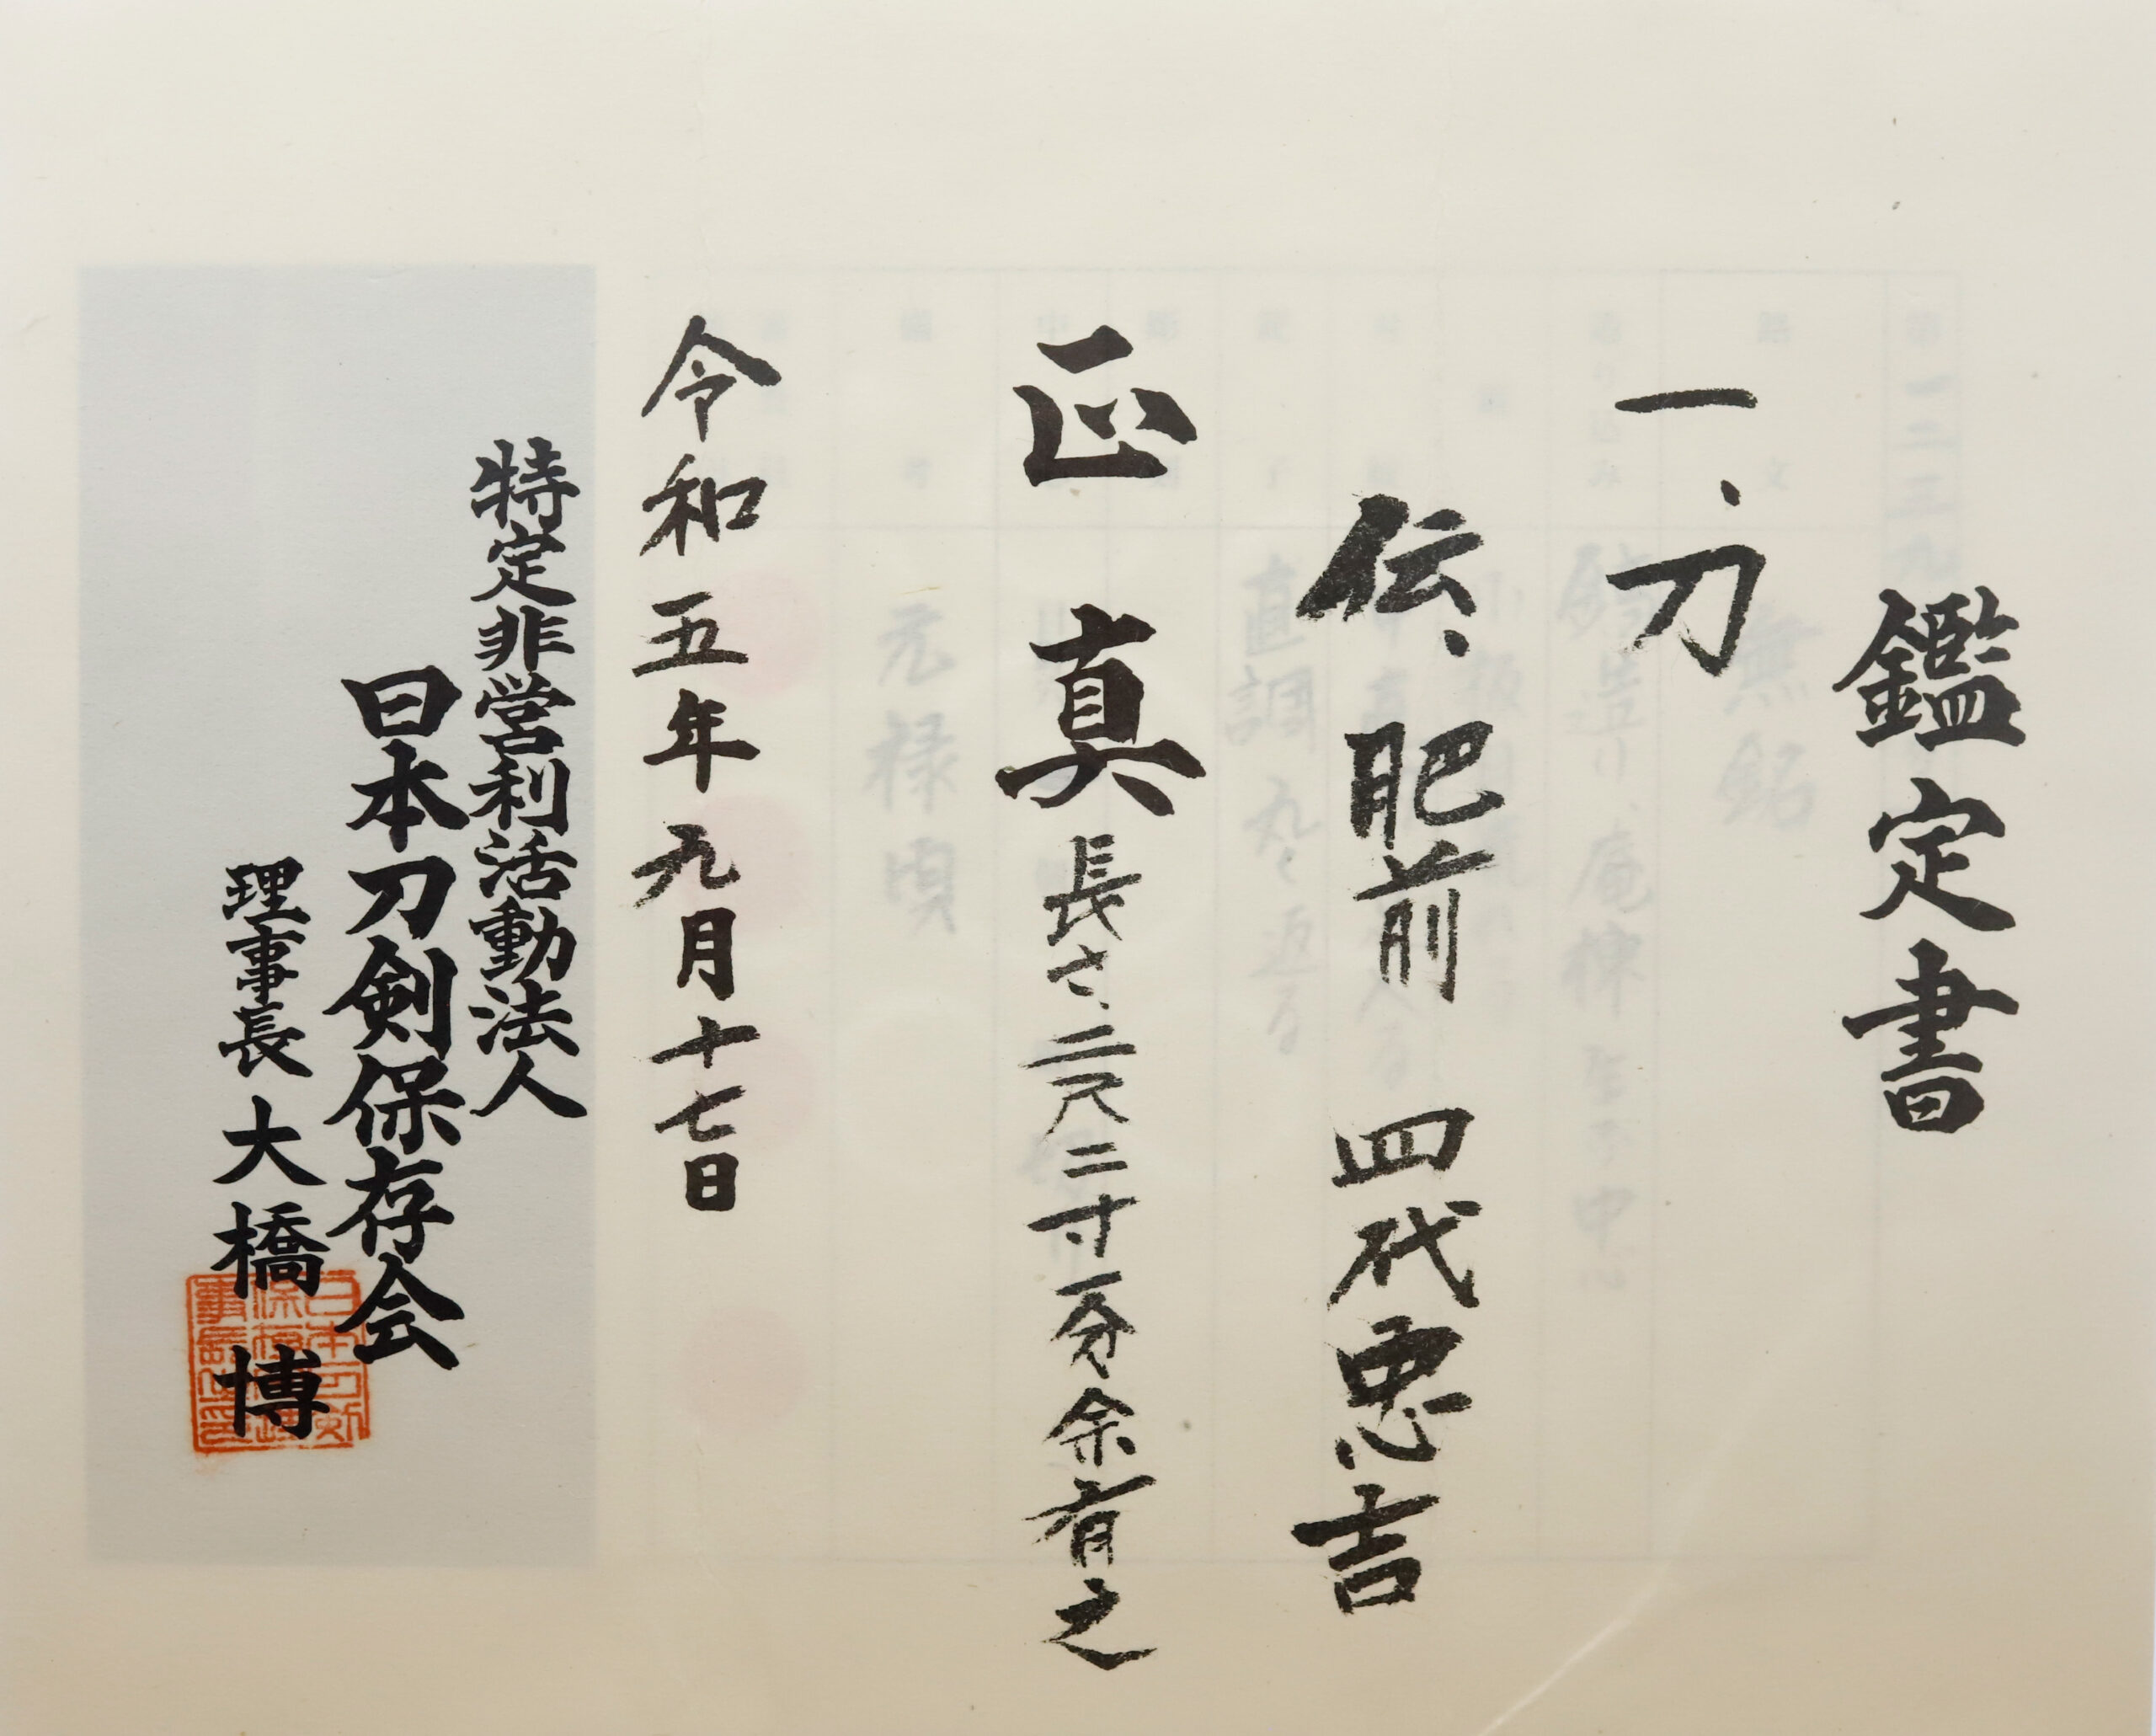 鑑定書
一、刀
伝、肥前 四代忠吉
正真 長さ、二尺二寸一分余有之
令和五年九月十七日
特定非営利活動法人
日本刀剣保存会
理事長 大橋 博
元禄頃
直調 丸く返る
無銘